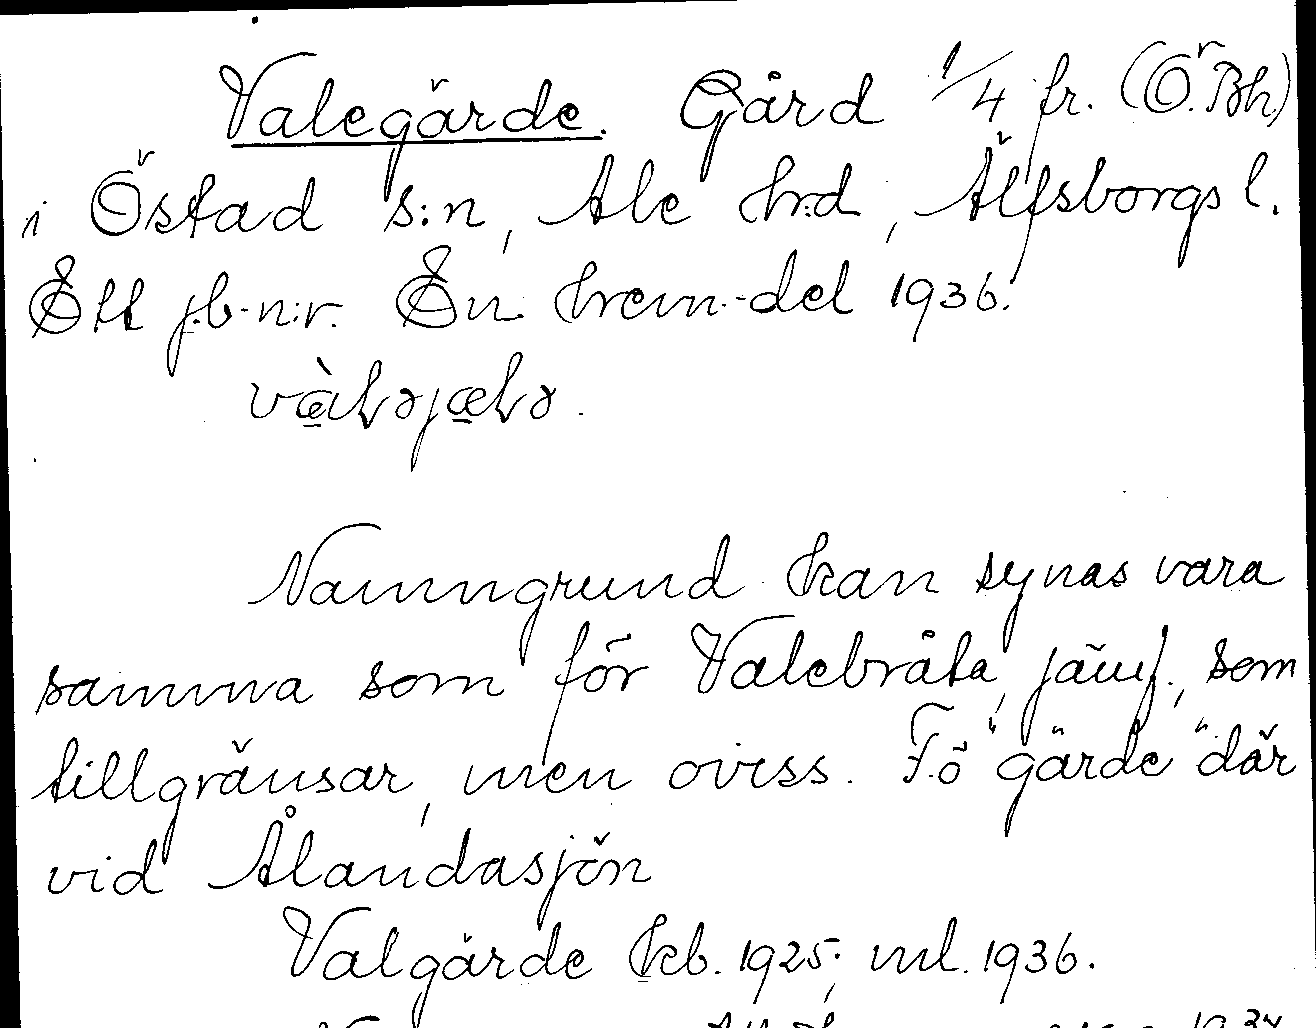 Valegärde. Gård 1/4 fr. (Ö. Bh)
i Östad s:n, Ale hrd, Älfsborgs l.
Ett j.b.n:r. En hem.-del 1936.
Namngrund kan synas vara
samma som för Valebråta, jämf., som
tillgränsar, men oviss. F.ö "gärde" där
vid Ålandasjön
Valgärde kb. 1925; ml. 1936.